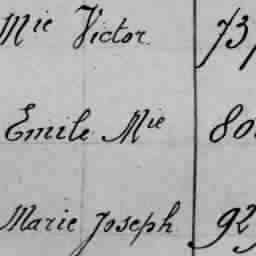 Mie Victor 73
Emile Mie 80
Marie Joseph 92